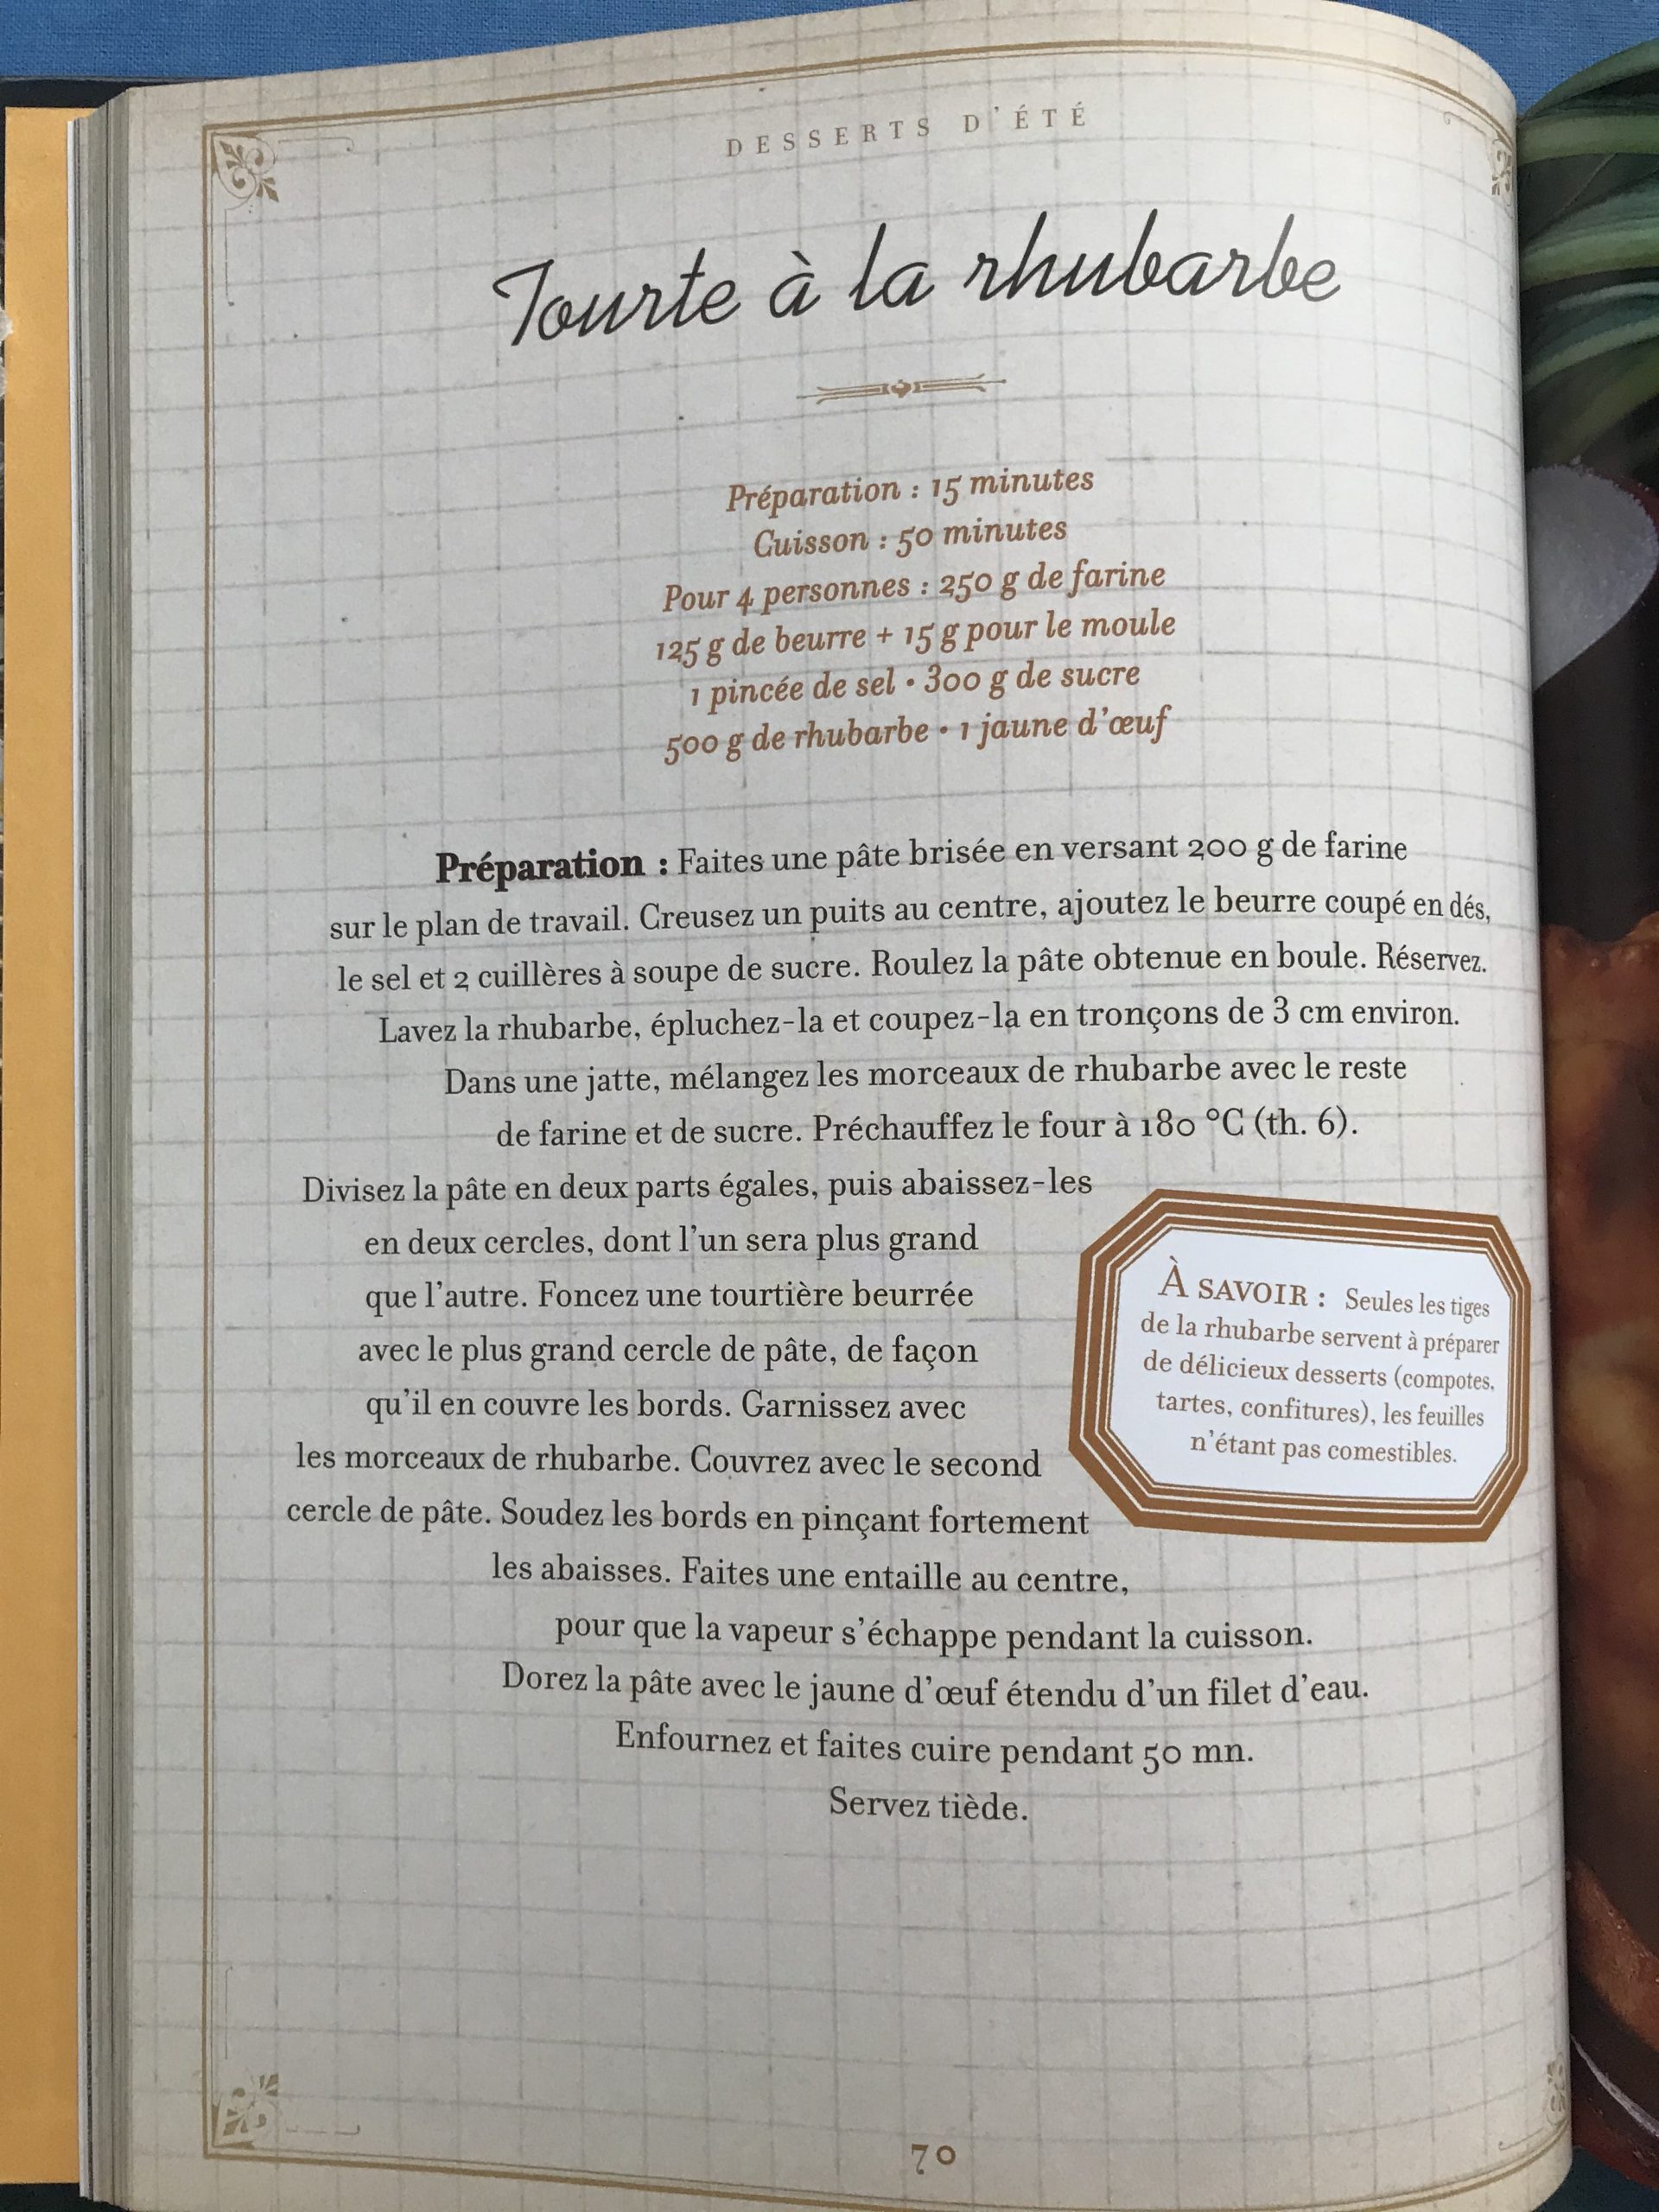 DESSERTS D'ÉTÉ
Tourte à la rhubarbe
Préparation : 15 minutes
Cuisson : 50 minutes
Pour 4 personnes : 250 g de farine
125 g de beurre + 15 g pour le moule
1 pincée de sel • 300 g de sucre
500 g de rhubarbe • 1 jaune d'œuf
Préparation : Faites une pâte brisée en versant 200 g de farine
sur le plan de travail. Creusez un puits au centre, ajoutez le beurre coupé en dés,
le sel et 2 cuillères à soupe de sucre. Roulez la pâte obtenue en boule. Réservez.
Lavez la rhubarbe, épluchez-la et coupez-la en tronçons de 3 cm environ.
Dans une jatte, mélangez les morceaux de rhubarbe avec le reste
de farine et de sucre. Préchauffez le four à 180 °C (th. 6).
Divisez la pâte en deux parts égales, puis abaissez-les
en deux cercles, dont l'un sera plus grand
que l'autre. Foncez une tourtière beurrée
avec le plus grand cercle de pâte, de façon
qu'il en couvre les bords. Garnissez avec
les morceaux de rhubarbe. Couvrez avec le second
cercle de pâte. Soudez les bords en pinçant fortement
les abaisses. Faites une entaille au centre,
pour que la vapeur s'échappe pendant la cuisson.
Dorez la pâte avec le jaune d'œuf étendu d'un filet d'eau.
Enfournez et faites cuire pendant 50 mn.
Servez tiède.
À SAVOIR : Seules les tiges
de la rhubarbe servent à préparer
de délicieux desserts (compotes,
tartes, confitures), les feuilles
n'étant pas comestibles.
70